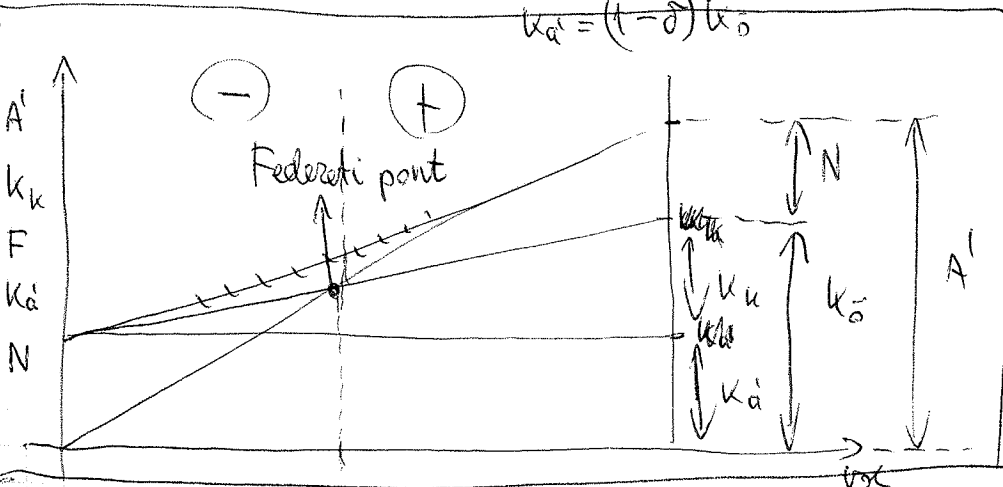 Ká = (1-δ) Kö
- +
Á
Kk
F
Ká
N
Fedezeti pont
N
Kk
Kö
Á
Ká
vol